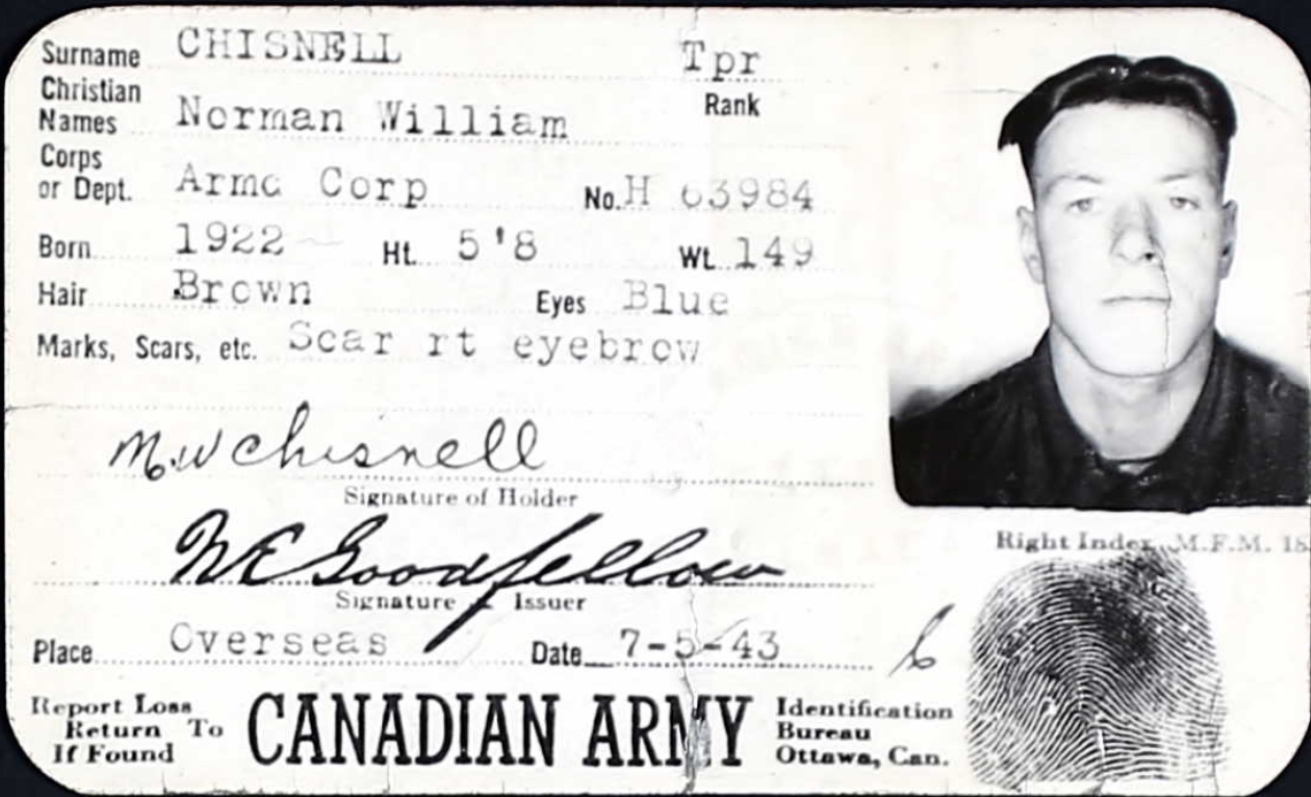 Surname CHISNELL Tpr
Rank
Christian
Names Norman William
Corps
or Dept. Armd Corp No. H 63984
Born 1922 Ht. 5'8 Wt. 149
Hair Brown Eyes Blue
Marks, Scars, etc. Scar rt eyebrow
N.W Chisnell
Signature of Holder
Right Index M.F.M. 18
W E Goodfellow
Signature Issuer
Place Overseas Date 7-5-43
Report Loss
Return To
If Found
CANADIAN ARMY
Identification
Bureau
Ottawa, Can.